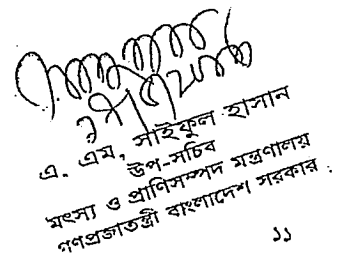 এ. এম, সাইফুল হাসান
উপ-সচিব
মৎস্য ও প্রাণিসম্পদ মন্ত্রণালয়
গণপ্রজাতন্ত্রী বাংলাদেশ সরকার
১১